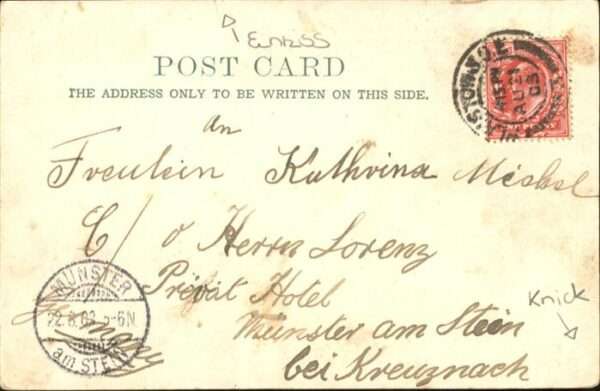 POST CARD
THE ADDRESS ONLY TO BE WRITTEN ON THIS SIDE.
An
Freulein Kathrina Meskel
C/o Herrn Lorenz
Privat Hotel
Münster am Stein
bei Kreuznach
Germany
MÜNSTER
22.8.03 5-6N
am STEIN
AU 21
03
Knick